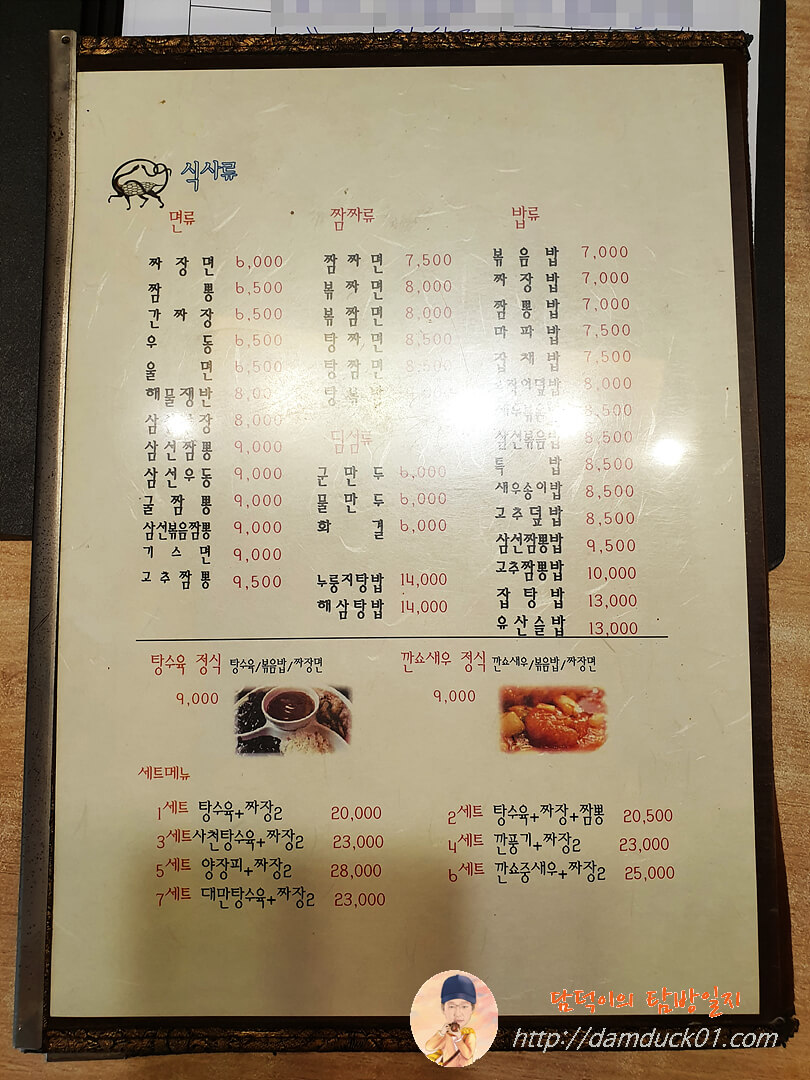 식사류
면류
짜장면 6,000
짬뽕 6,500
간짜장 6,500
우동 6,500
울면 6,500
해물쟁반 8,000
삼 장 8,000
삼선짬뽕 9,000
삼선우동 9,000
굴짬뽕 9,000
삼선볶음짬뽕 9,000
기스면 9,000
고추짬뽕 9,500
짬짜류
짬짜면 7,500
볶짜면 8,000
볶짬면 8,000
탕짜면 8,500
탕짬면 8,500
탕볶밥
딤섬류
군만두 6,000
물만두 6,000
화 6,000
누룽지탕밥 14,000
해삼탕밥 14,000
밥류
볶음밥 7,000
짜장밥 7,000
짬뽕밥 7,000
마파밥 7,500
잡채밥 7,500
덮밥 8,000
새우볶음 8,500
삼선볶음밥 8,500
특밥 8,500
새우송이밥 8,500
고추덮밥 8,500
삼선짬뽕밥 9,500
고추짬뽕밥 10,000
잡탕밥 13,000
유산슬밥 13,000
탕수육 정식 탕수육/볶음밥/짜장면
9,000
깐쇼새우 정식 깐쇼새우/볶음밥/짜장면
9,000
세트메뉴
1세트 탕수육+짜장2 20,000
2세트 탕수육+짜장+짬뽕 20,500
3세트 사천탕수육+짜장2 23,000
4세트 깐풍기+짜장2 23,000
5세트 양장피+짜장2 28,000
6세트 깐쇼중새우+짜장2 25,000
7세트 대만탕수육+짜장2 23,000
담덕이의 탐방일지
http://damduck01.com